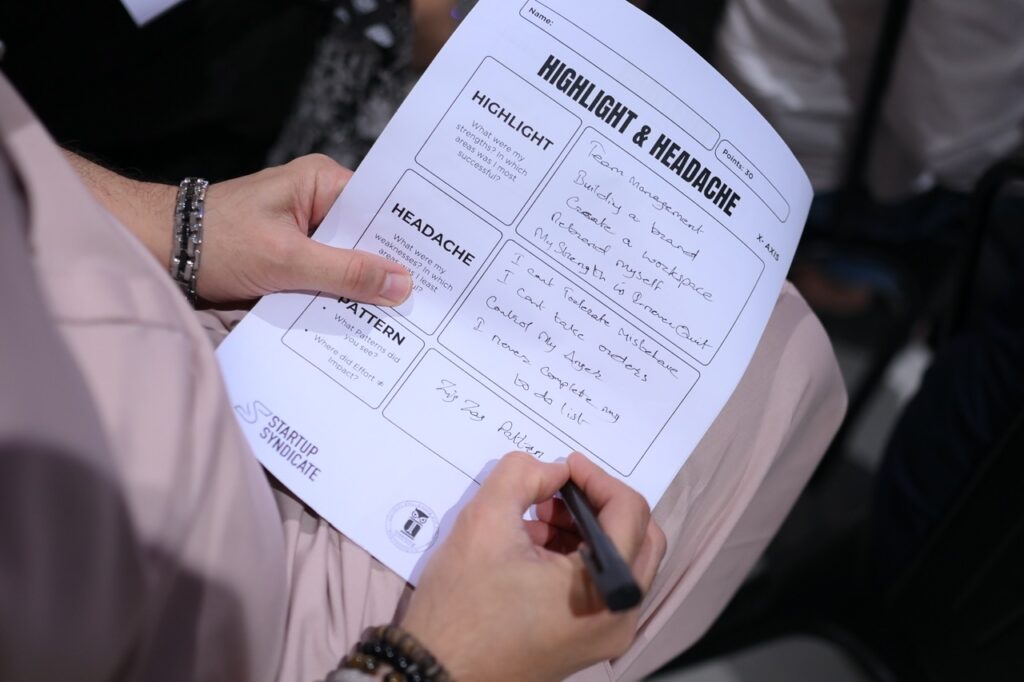 Name:
HIGHLIGHT & HEADACHE
Points: 30
X-AXIS
HIGHLIGHT
What were my
strengths? In which
areas was I most
successful?
Team Management
Building a brand
Create a workspace
Rebrand myself
My Strength is I never Quit
HEADACHE
What were my
weaknesses? In which
areas was I least
I cant Tolerate Misbehave
I cant take orders
Control My Anger
I never complete my
to do list
PATTERN
• What Patterns did
you see?
• Where did Effort ≠
Impact?
Zig Zag Pattern
STARTUP
SYNDICATE